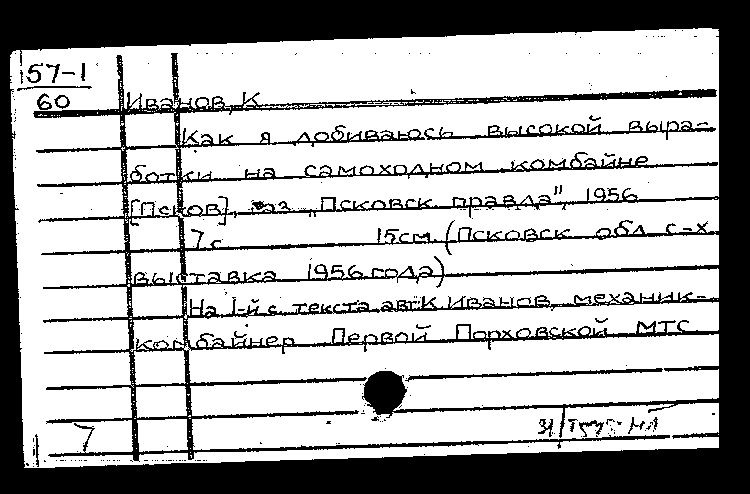 57-1
60
Иванов, К
Как я добиваюсь высокой выра=
ботки на самоходном комбайне
[Псков], газ „Псковск правда", 1956
7 с 15см (Псковск обл с-х
выставка 1956 года)
На 1-й с текста авт: К Иванов, механик-
комбайнер Первой Порховской МТС
7